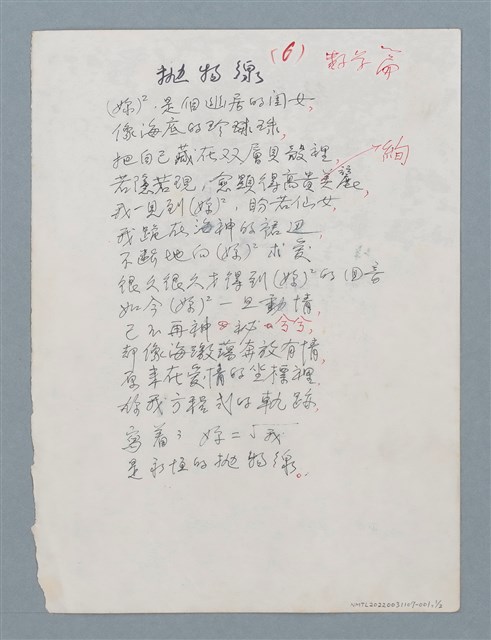 (6) 數学篇
拋物線
(妳)²是個幽居的閨女,
像海底的珍珠,
把自己藏在双層貝殼裡,
若隱若現,愈顯得高貴美麗,
絢
我一見到(妳)²,盼若仙女,
我跪在海神的裙边,
不斷地向(妳)²求愛
很久很久才得到(妳)²的回音
如今(妳)²一旦動情,
已不再神秘兮兮,
却像海激蕩奔放有情,
原来在愛情的坐標裡,
你我方程式的軌跡,
寫着:妳=√我
是永恒的拋物線。
NMTL20220031107-001, 1/2